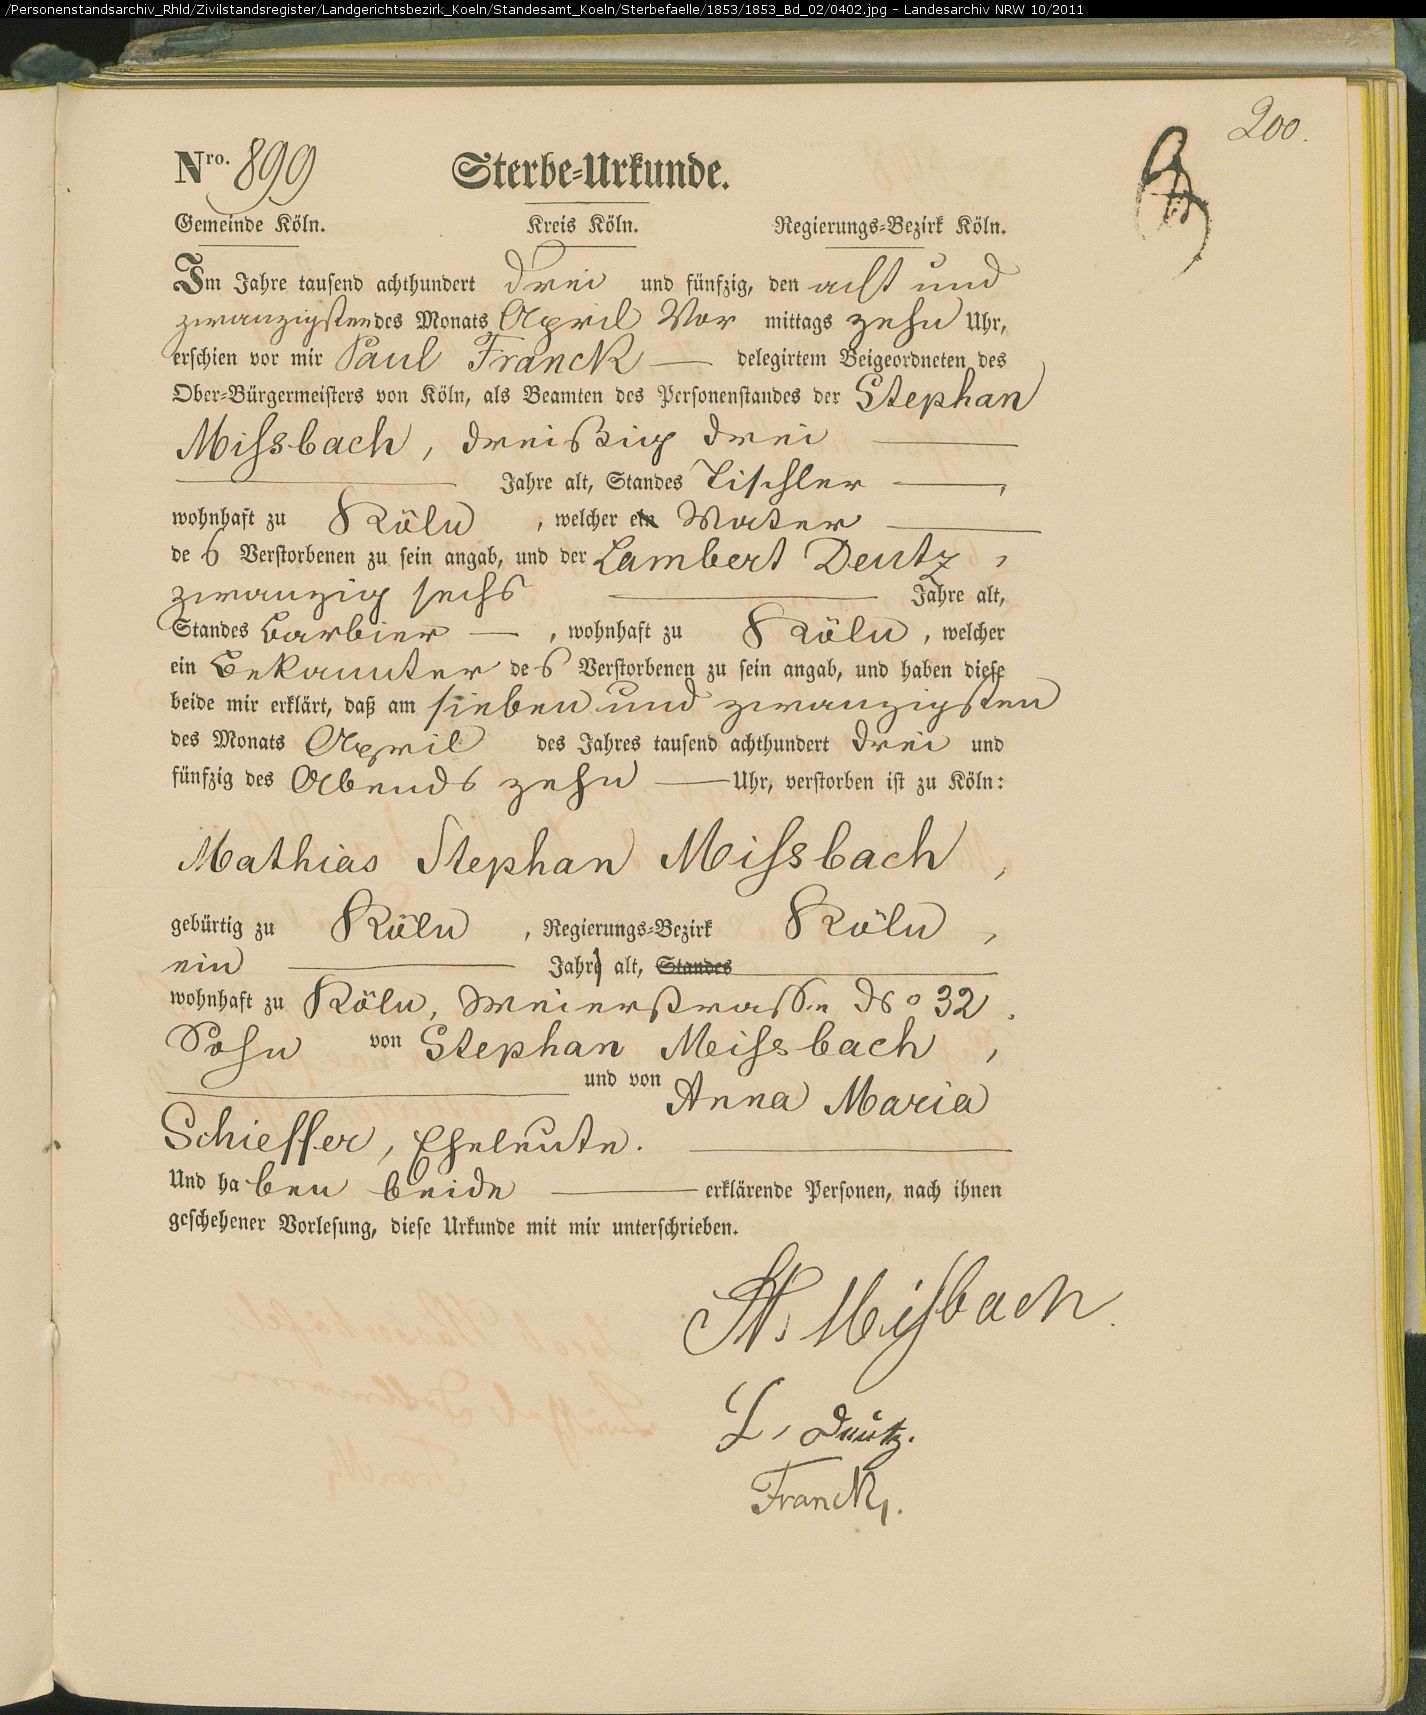 /Personenstandsarchiv_Rhld/Zivilstandsregister/Landgerichtsbezirk_Koeln/Standesamt_Koeln/Sterbefaelle/1853/1853_Bd_02/0402.jpg - Landesarchiv NRW 10/2011
200.
Nro. 899 Sterbe-Urkunde.
Gemeinde Köln. Kreis Köln. Regierungs-Bezirk Köln.
Im Jahre tausend achthundert drei und fünfzig, den acht und
zwanzigsten des Monats April Vor mittags zehn Uhr,
erschien vor mir Paul Franck — delegirtem Beigeordneten des
Ober-Bürgermeisters von Köln, als Beamten des Personenstandes der Stephan
Missbach, dreißig drei —
— Jahre alt, Standes Tischler —,
wohnhaft zu Köln, welcher ein Vater —
des Verstorbenen zu sein angab, und der Lambert Deutz,
zwanzig sechs — Jahre alt,
Standes Barbier —, wohnhaft zu Köln, welcher
ein Bekannter des Verstorbenen zu sein angab, und haben diese
beide mir erklärt, daß am sieben und zwanzigsten
des Monats April des Jahres tausend achthundert drei und
fünfzig des Abends zehn — Uhr, verstorben ist zu Köln:
Mathias Stephan Missbach,
gebürtig zu Köln, Regierungs-Bezirk Köln,
ein — Jahr alt, Standes —
wohnhaft zu Köln, Weierstrasse No 32.
Sohn von Stephan Meissbach,
— und von Anna Maria
Schieffer, Eheleute. —
Und haben beide — erklärende Personen, nach ihnen
geschehener Vorlesung, diese Urkunde mit mir unterschrieben.
St. Misbach
L. Deutz.
Franck.